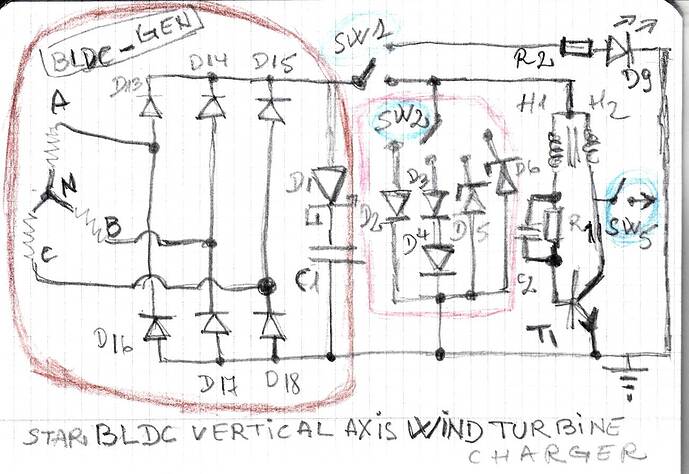 BLDC-GEN
D13 D14 D15
SW1
R2
D9
A
SW2
H1 H2
N
D1
D2 D3 D5 D6
D4
R1
SW5
B
C
C1
C2
T1
D16
D17 D18
STAR, BLDC VERTICAL AXIS WIND TURBINE
CHARGER